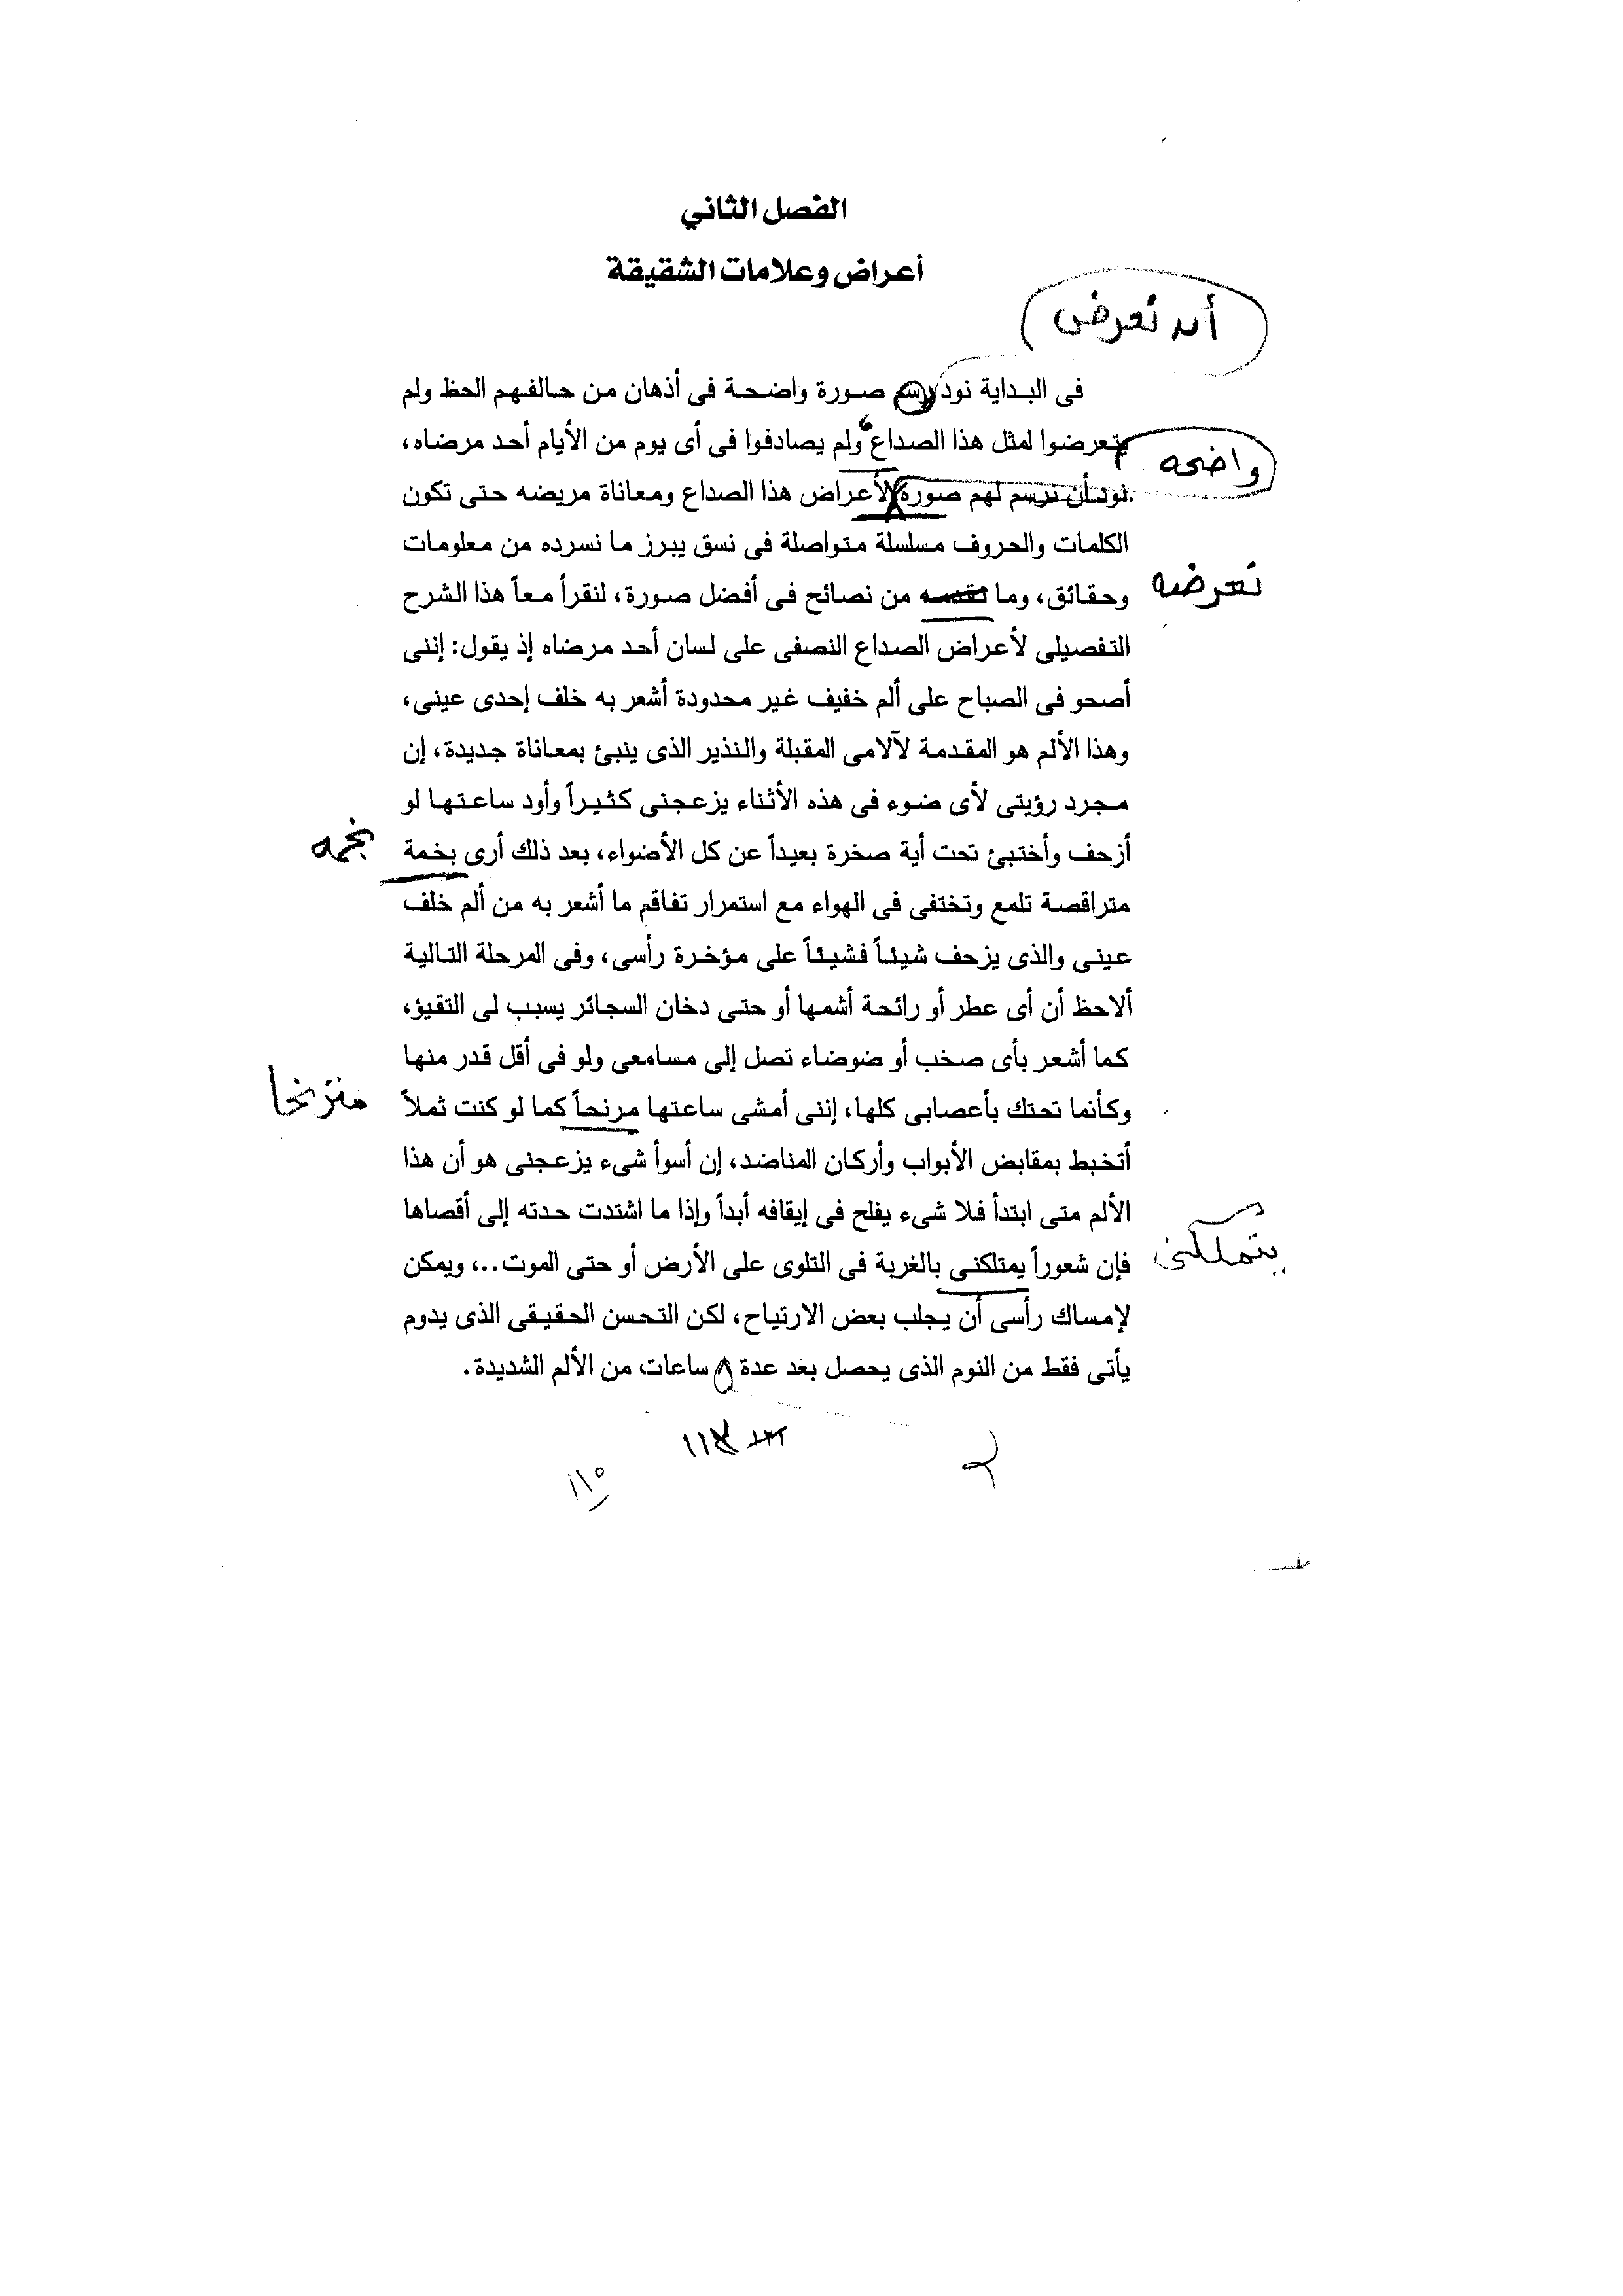 الفصل الثاني
أعراض وعلامات الشقيقة
أن نعرض
فى البداية نود رسم صورة واضحة فى أذهان من حالفهم الحظ ولم
يتعرضوا لمثل هذا الصداع ولم يصادفوا فى أى يوم من الأيام أحد مرضاه،
واضحه
نود أن نرسم لهم صورة لأعراض هذا الصداع ومعاناة مريضه حتى تكون
الكلمات والحروف مسلسلة متواصلة فى نسق يبرز ما نسرده من معلومات
وحقائق، وما نقدمه من نصائح فى أفضل صورة، لنقرأ معاً هذا الشرح
نعرضه
التفصيلى لأعراض الصداع النصفى على لسان أحد مرضاه إذ يقول: إننى
أصحو فى الصباح على ألم خفيف غير محدودة أشعر به خلف إحدى عينى،
وهذا الألم هو المقدمة لآلامى المقبلة والنذير الذى ينبئ بمعاناة جديدة، إن
مجرد رؤيتى لأى ضوء فى هذه الأثناء يزعجنى كثيراً وأود ساعتها لو
أزحف وأختبئ تحت أية صخرة بعيداً عن كل الأضواء، بعد ذلك أرى بخمة
نجمه
متراقصة تلمع وتختفى فى الهواء مع استمرار تفاقم ما أشعر به من ألم خلف
عينى والذى يزحف شيئاً فشيئاً على مؤخرة رأسى، وفى المرحلة التالية
ألاحظ أن أى عطر أو رائحة أشمها أو حتى دخان السجائر يسبب لى التقيؤ،
كما أشعر بأى صخب أو ضوضاء تصل إلى مسامعى ولو فى أقل قدر منها
وكأنما تحتك بأعصابى كلها، إننى أمشى ساعتها مرنحاً كما لو كنت ثملاً
مترنحا
أتخبط بمقابض الأبواب وأركان المناضد، إن أسوأ شىء يزعجنى هو أن هذا
الألم متى ابتدأ فلا شىء يفلح فى إيقافه أبداً وإذا ما اشتدت حدته إلى أقصاها
فإن شعوراً يمتلكنى بالغربة فى التلوى على الأرض أو حتى الموت..، ويمكن
يتملكنى
لإمساك رأسى أن يجلب بعض الارتياح، لكن التحسن الحقيقى الذى يدوم
يأتى فقط من النوم الذى يحصل بعد عدة ساعات من الألم الشديدة.
١١٥